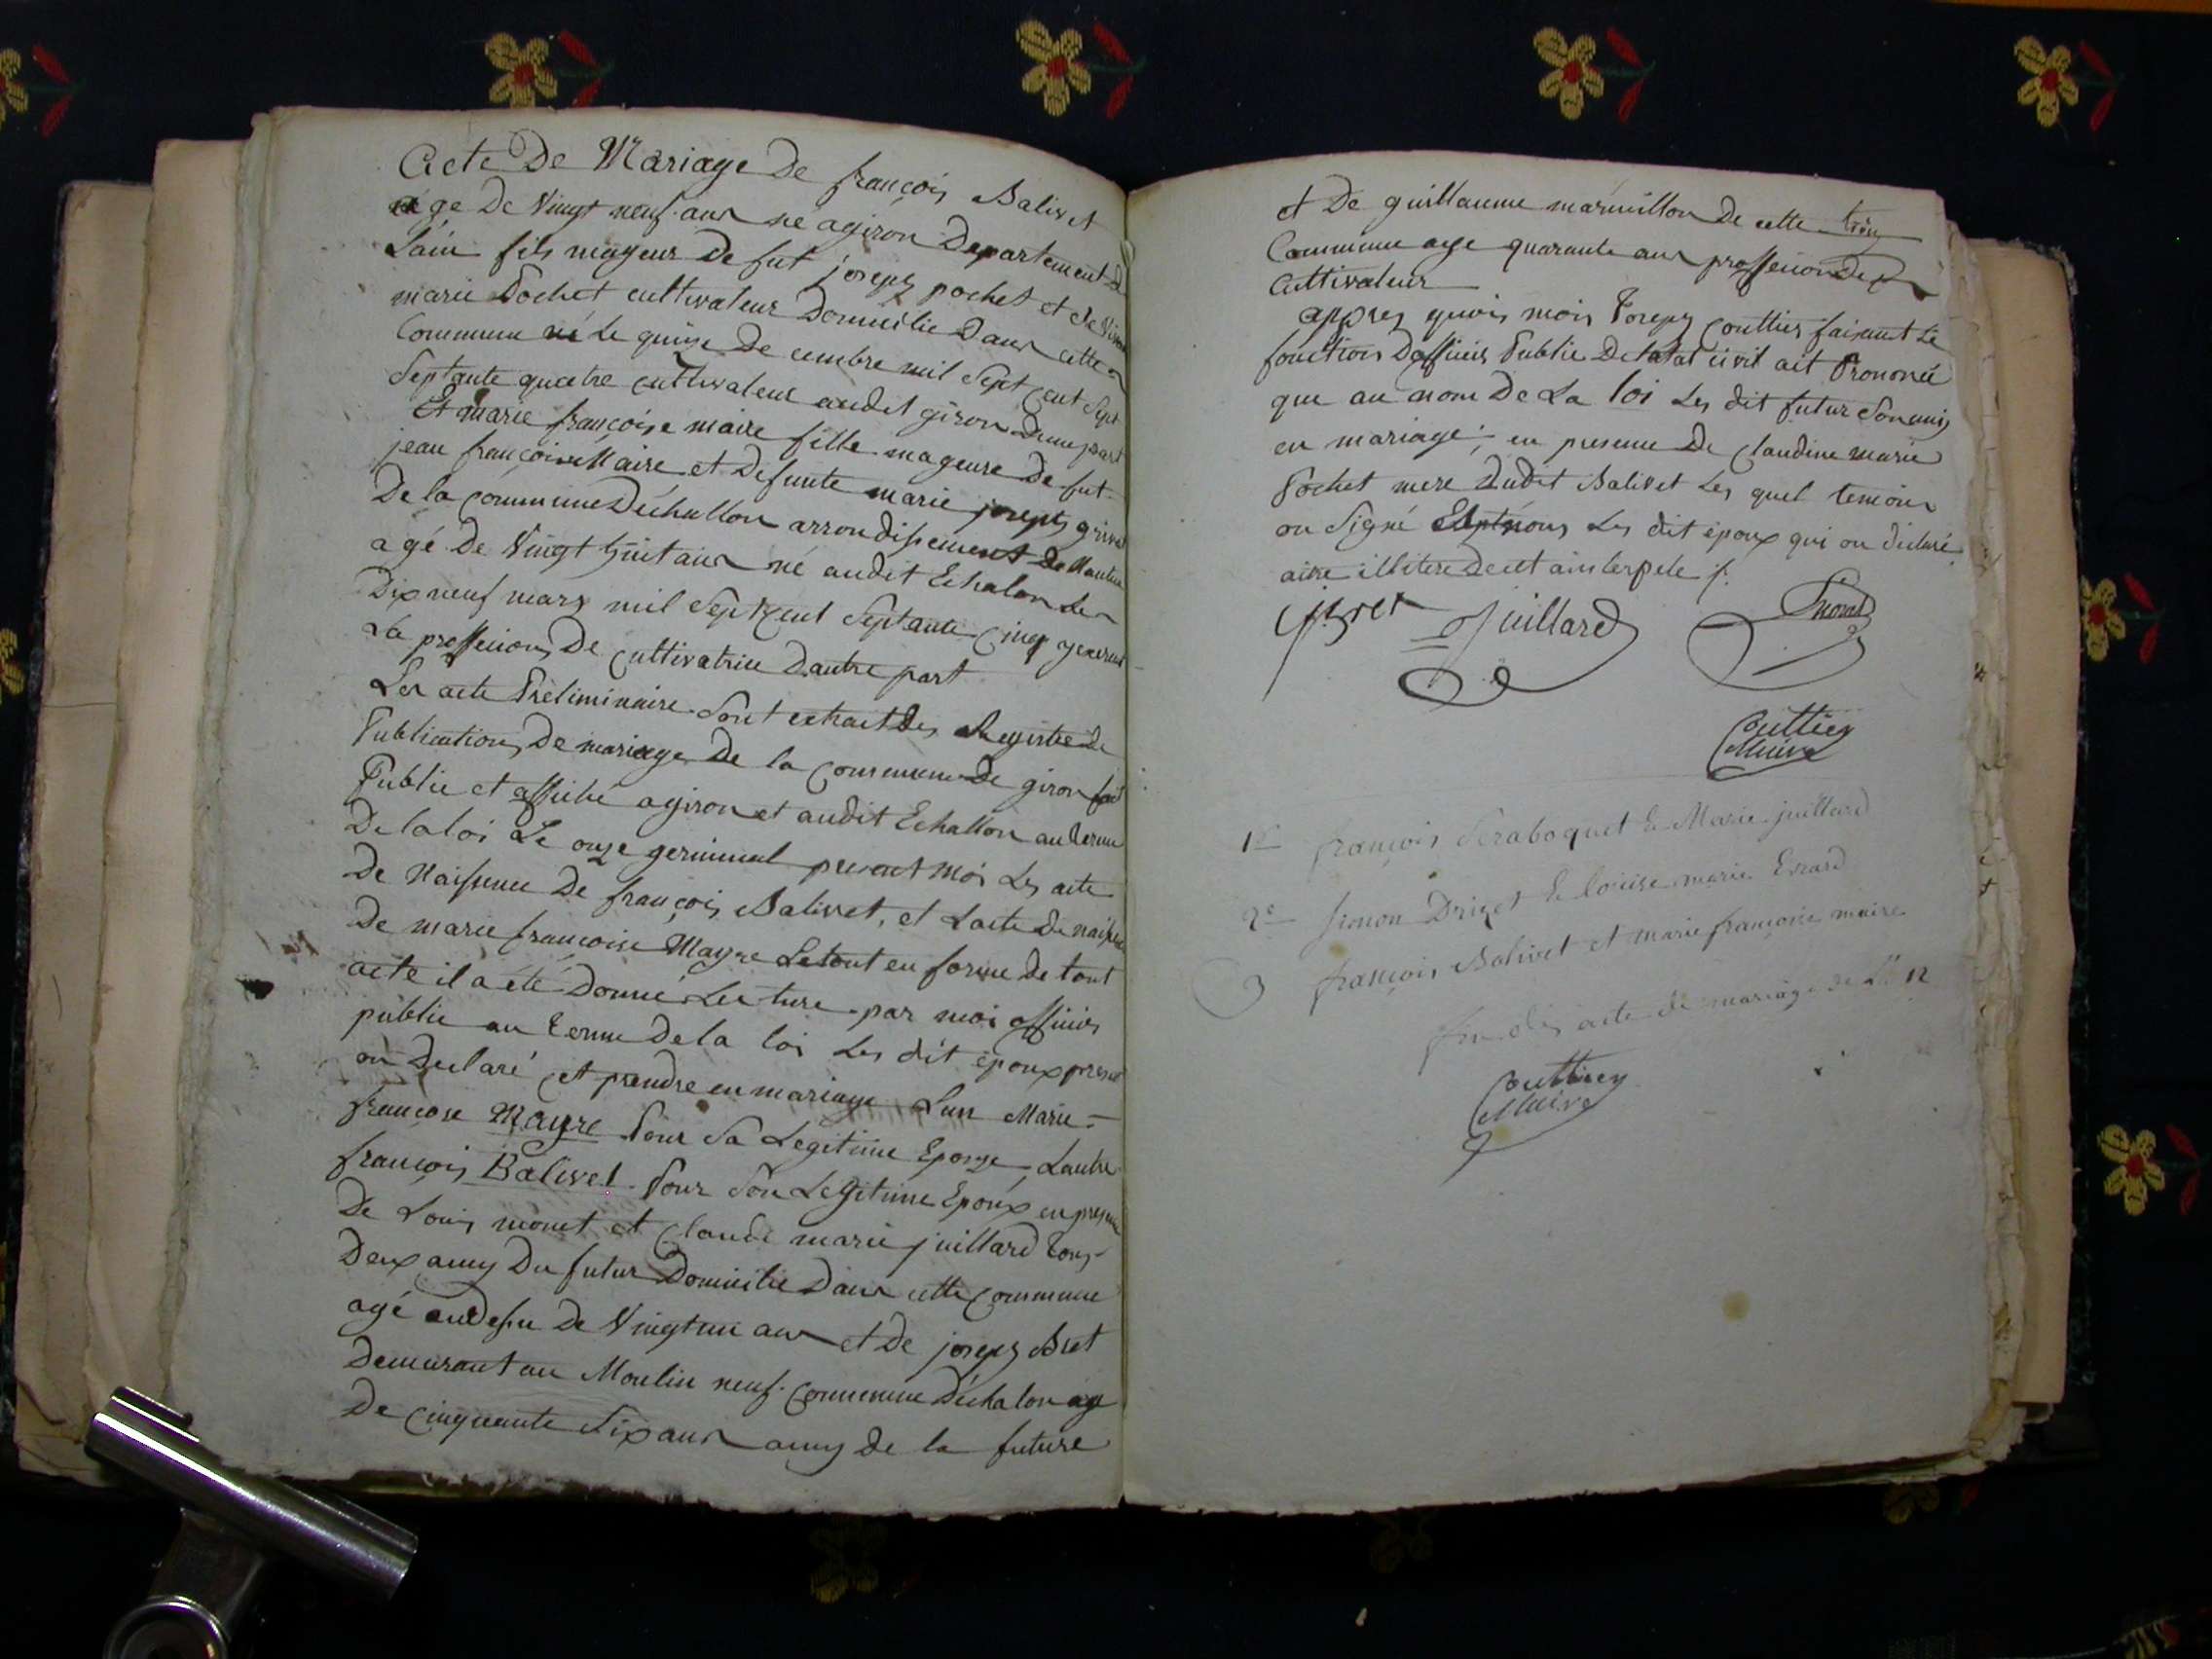 Acte De Mariage De françois Balivet
agé De Vingt neuf ans né agiron Departement De
Lain fils mageur De fut joseph pochet et De
marie Pochet cultivateur Domicilie Dans cette
Commune né Le quinze De cembre mil Sept cent Sept
Septante quatre cultivateur audit giron Dune part
Et marie françoise maire fille mageure De fut
jean françois Maire et Defunte marie joseph
De la commune Déchallon arrondissement De Nantua
agé De Vingt huit ans né audit Echalon Le
Dix neuf mars mil Sept Cent Septante Cinq
La profession De cultivatrice Dautre part
Les acte Préliminaire Sont extrait Des Registre De
Publication De mariage De la commune De giron fait
Publie et affiché agiron et audit Echallon au terme
De la loi Le onze germinal present Moi Les acte
De Naissence De françois Balivet, et Lacte De naissence
De marie françoise Mayre Le tout en forme De tout
acte il a été Donné Lecture par moi officier
public au terme De la loi Les dit époux present
on Declaré et prendre en mariage Lun Marie
françose Mayre Pour Sa Legitime Epouze, Lautre
françois Balivet Pour Son Legitime Epoux en presence
De Louis monet et Claude marie juillard tous
Deux amy Du futur Domicilie Dans cette commune
agé audessu De Vingt un ans et De joseph Bret
Demeurant au Moulin neuf commune Déchalon age
De cinquante Six ans amy de la future
et De guillaume marmillon De cette
Commune age quarante ans profession De
Cultivateur
appres quois mois Joseph Couttier faisant Le
fonction Dofficier Public De Letat civil ait Prononcé
que au nom De La loi Les dit futur Son unis
en mariage; en presence De Claudine marie
Pochet mere Dudit Balivet Les quel temoins
on Signé Les dit époux qui on diclaré
aitre illitere De cet ainterpele
Juillard
Monet
Couttier
Maire
1er françois Scraboquet & Marie juillard
2e Simon Drizet & louise marie Evrard
3 françois Balivet et marie françoise maire
fin des acte de mariage de L'an 12
Couttier
Maire